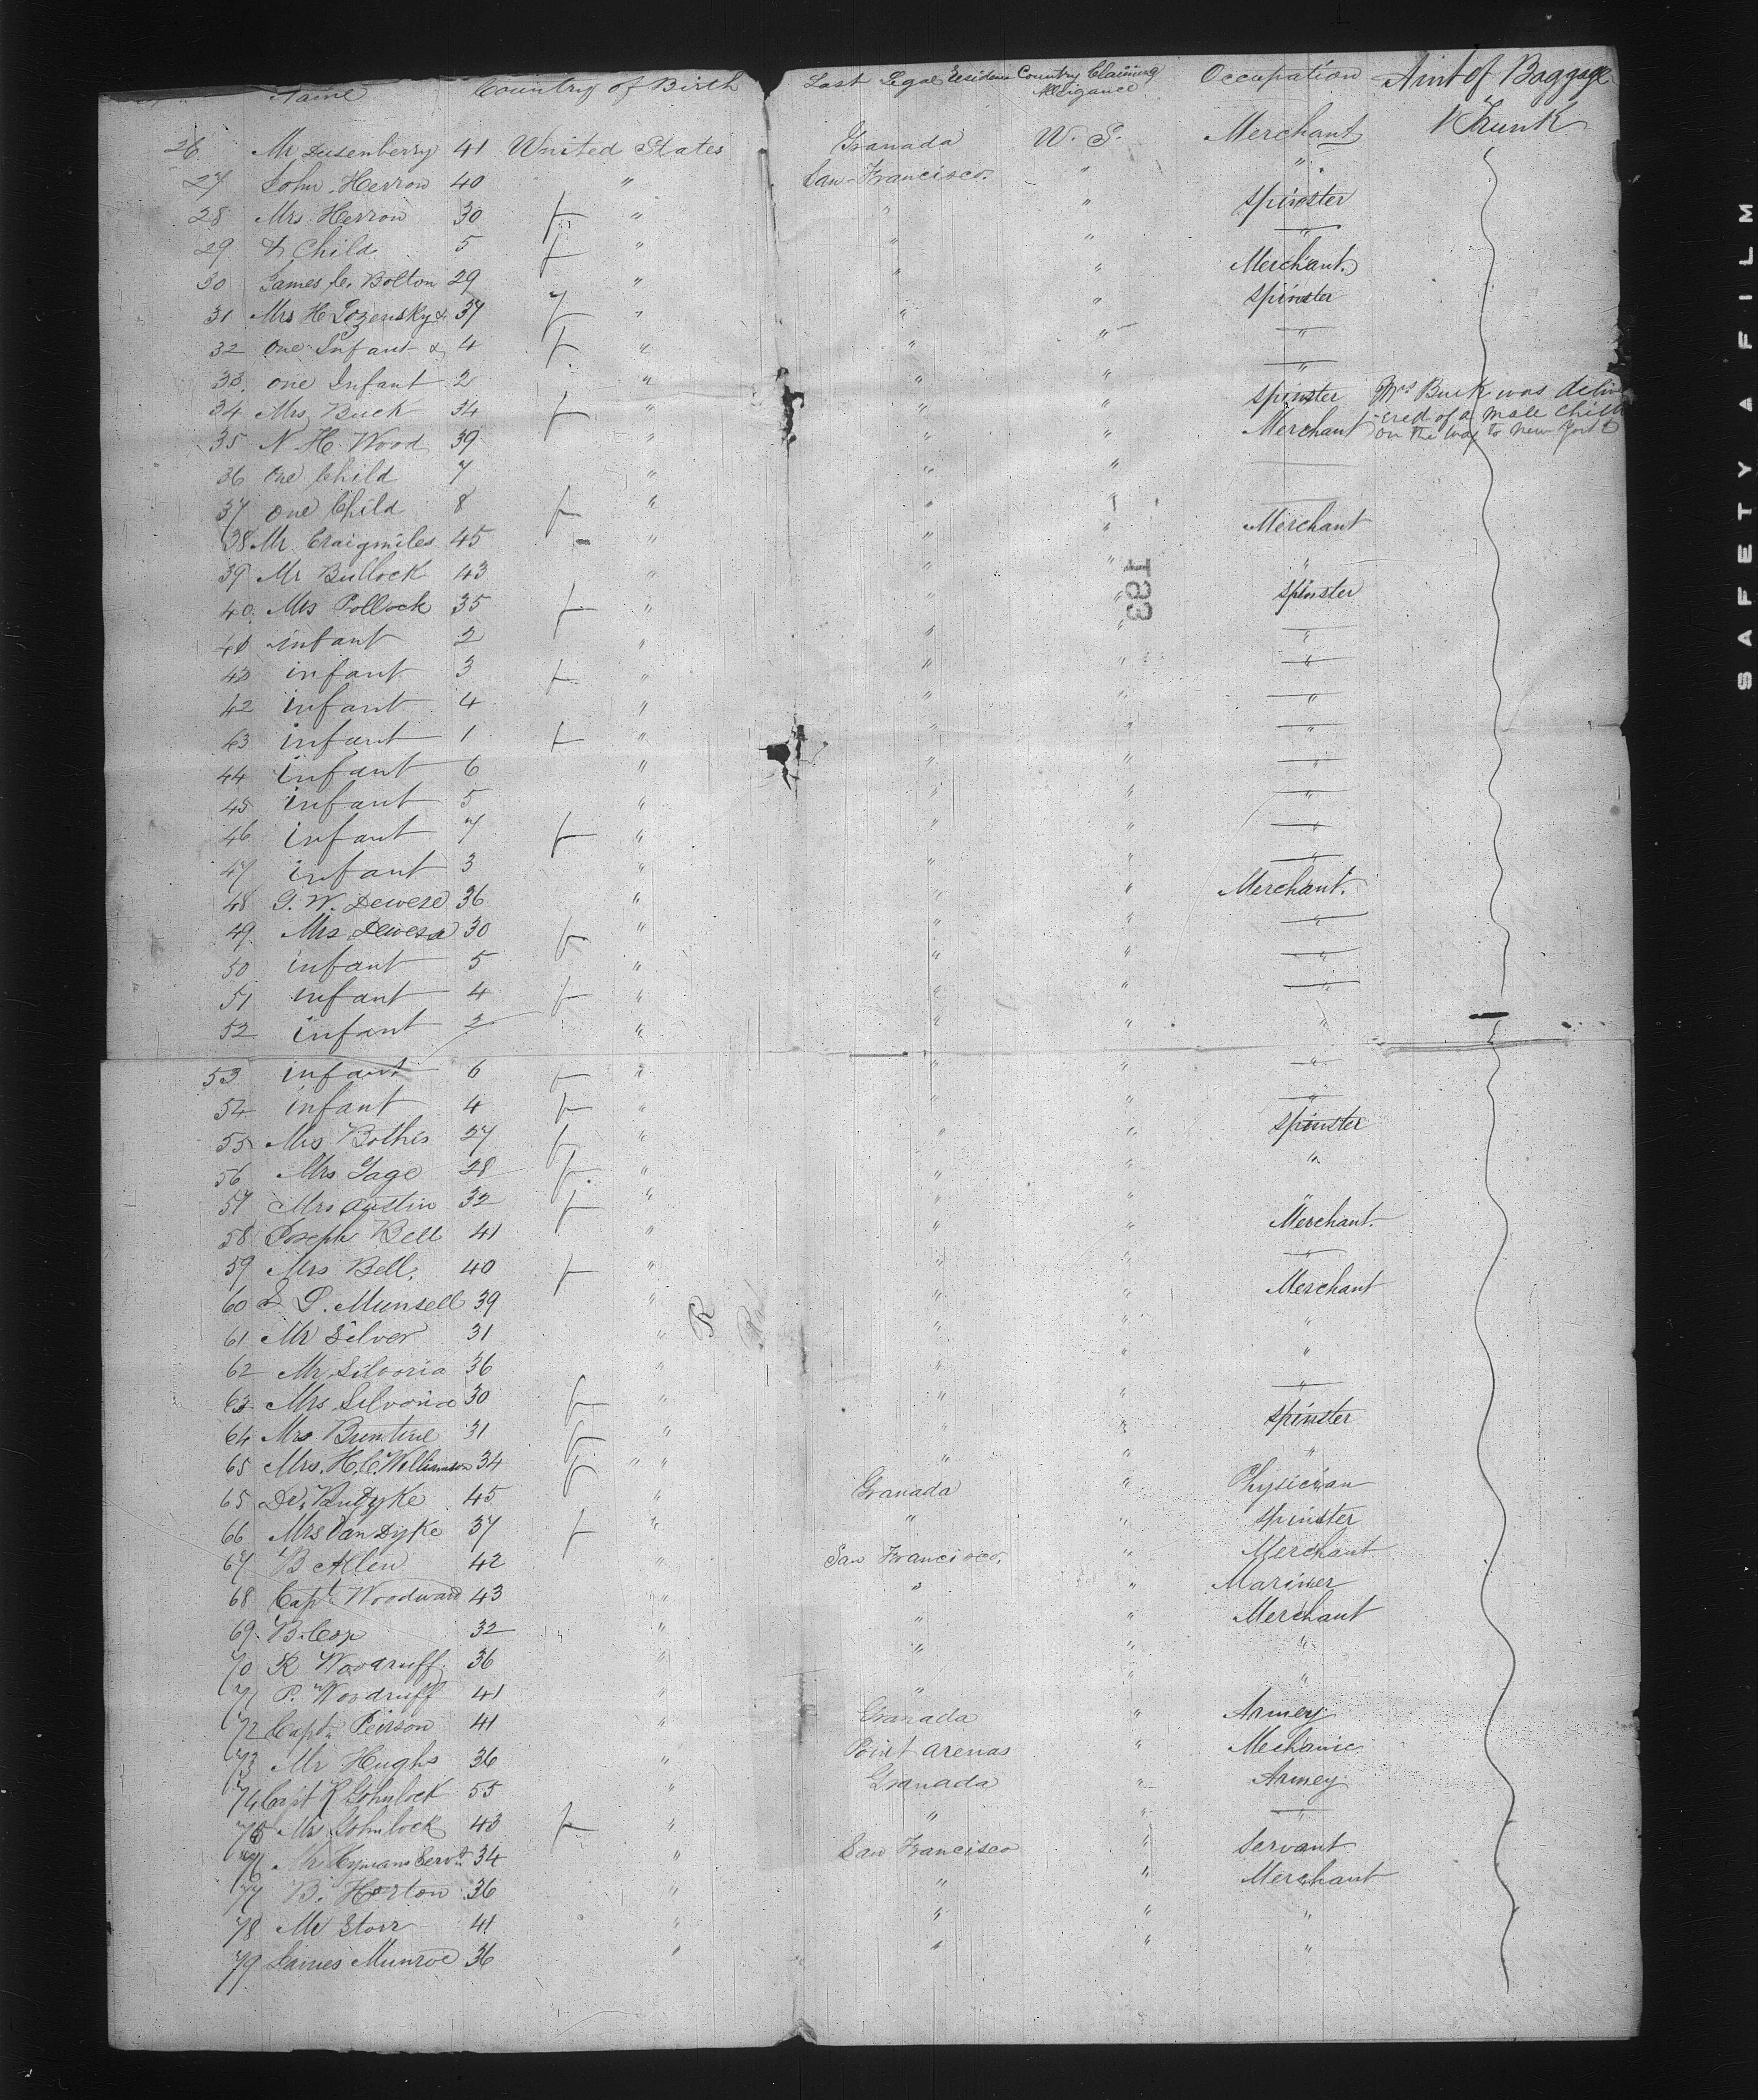 Name Country of Birth Last Legal Residence Country Claiming Allegiance Occupation Amt of Baggage
26 Mr Dusenberry 41 United States Granada U. S. Merchant 1 Trunk
27 John Herron 40 " San Francisco " "
28 Mrs Herron 30 " " " Spinster
29 & Child 5 " " " "
30 James C. Bolton 29 " " " Merchant
31 Mrs H Lozensky & 37 " " " Spinster
32 One Infant & 4 " " " "
33 one Infant 2 " " " "
34 Mrs Buck 34 " " " Spinster Mrs Buck was deliv
35 N H Wood 39 " " " Merchant -ered of a male child on the way to New York
36 One Child 7 " " "
37 One Child 8 " " "
38 Mr Craigmiles 45 " " " Merchant
39 Mr Bullock 43 " " " "
40 Mrs Pollock 35 " " " Spinster
40 infant 2 " " " "
42 infant 3 " " " "
42 infant 4 " " " "
43 infant 1 " " " "
44 infant 6 " " " "
45 infant 5 " " " "
46 infant 7 " " " "
47 infant 3 " " " "
48 G. W. Dewese 36 " " " Merchant.
49 Mrs Dewese 30 " " " "
50 infant 5 " " " "
51 infant 4 " " " "
52 infant 2 " " " "
53 infant 6 " " " "
54 infant 4 " " " "
55 Mrs Bothis 27 " " " Spinster
56 Mrs Gage 28 " " " "
57 Mrs Austin 32 " " " "
58 Joseph Bell 41 " " " Merchant.
59 Mrs Bell. 40 " " " "
60 S. D. Munsell 39 " " " Merchant
61 Mr Silver 31 " " " "
62 Mr Silvoria 36 " " " "
63 Mrs Silvoria 30 " " " "
64 Mrs Buntine 31 " " " Spinster
65 Mrs. H. C. Williamson 34 " " " " "
65 Dr. VanDyke 45 " Granada " Physician
66 Mrs Van Dyke 37 " " " Spinster
67 B Allen 42 " San Francisco. " Merchant
68 Capt Woodward 43 " " " Mariner
69 B. Cox 32 " " " Merchant
70 R Woodruff 36 " " " "
71 P. Woodruff 41 " " " "
72 Capt. Peirson 41 " Granada " Armey
73 Mr Hughs 36 " Point Arenas " Mechanic
74 Capt R Johnlock 55 " Granada " Armey
75 Mrs Johnlock 43 " " " "
76 Mr Hymans Servt 34 " San Francisco " Servant
77 B. Horton 36 " " " Merchant
78 Mr Storr 41 " " " "
79 James Munroe 36 " " " "
183
R
SAFETY A FILM